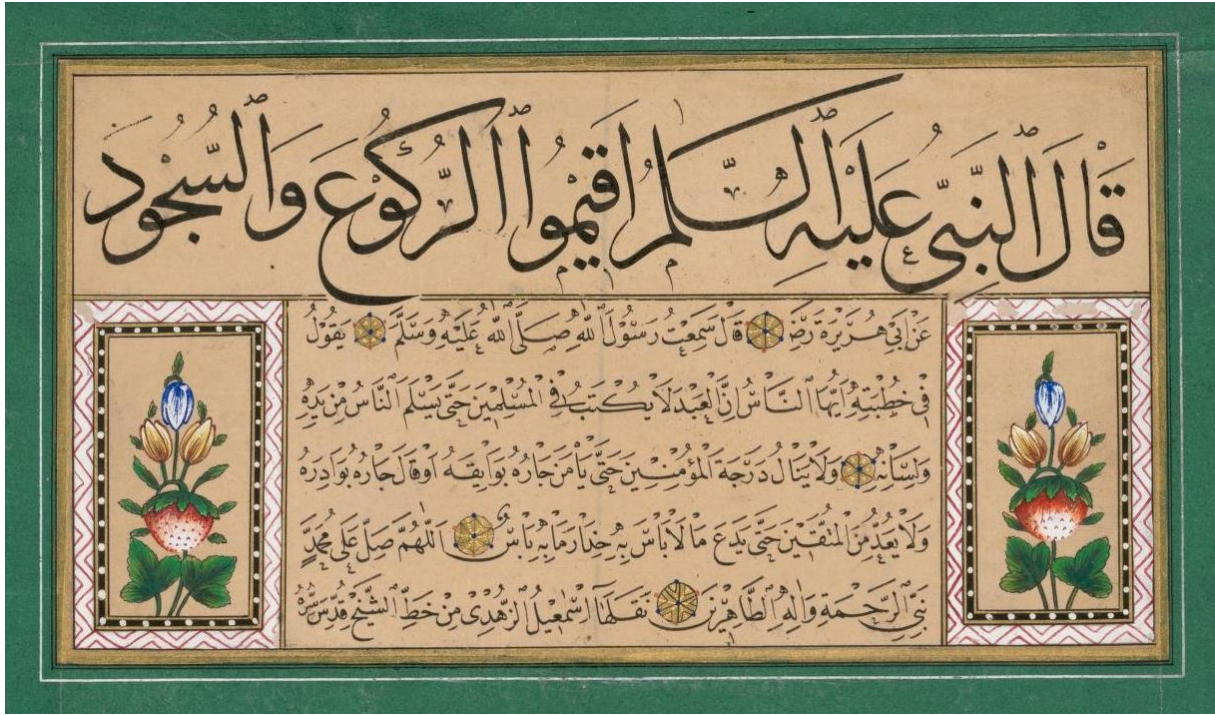 قَالَ ٱلنَّبِيُّ عَلَيْهِ ٱلسَّلٰمُ اَقِيْمُوا ٱلرُّكُوْعَ وَٱلسُّجُوْدَ
عَنْ اَبِي هُرَيْرَةَ رَضِ قَالَ سَمِعْتُ رَسُوْلَ ٱللّٰهِ صَلَّى ٱللّٰهُ عَلَيْهِ وَسَلَّمَ يَقُوْلُ
فِي خُطْبَتِهِ اَيُّهَا ٱلنَّاسُ اِنَّ ٱلْعَبْدَ لَا يُكْتَبُ فِي ٱلْمُسْلِمِيْنَ حَتّٰى يَسْلَمَ ٱلنَّاسُ مِنْ يَدِهِ
وَلِسَانِهِ وَلَا يَنَالُ دَرَجَةَ ٱلْمُؤْمِنِيْنَ حَتّٰى يَأْمَنَ جَارُهُ بَوَايِقَهُ اَوْ قَالَ جَارُهُ بَوَادِرَهُ
وَلَا يُعَدُّ مِنَ ٱلْمُتَّقِيْنَ حَتّٰى يَدَعَ مَا لَا بَاْسَ بِهِ حِذَارَ مَا بِهِ بَاْسٌ اَللّٰهُمَّ صَلِّ عَلٰى مُحَمَّدٍ
نَبِيِّ ٱلرَّحْمَةِ وَاٰلِهِ ٱلطَّاهِرِيْنَ نَقَلَهَا ٱسْمٰعِيْلُ ٱلزُّهْدِي مِنْ خَطِّ ٱلشَّيْخِ قُدِّسَ سِرُّهُ